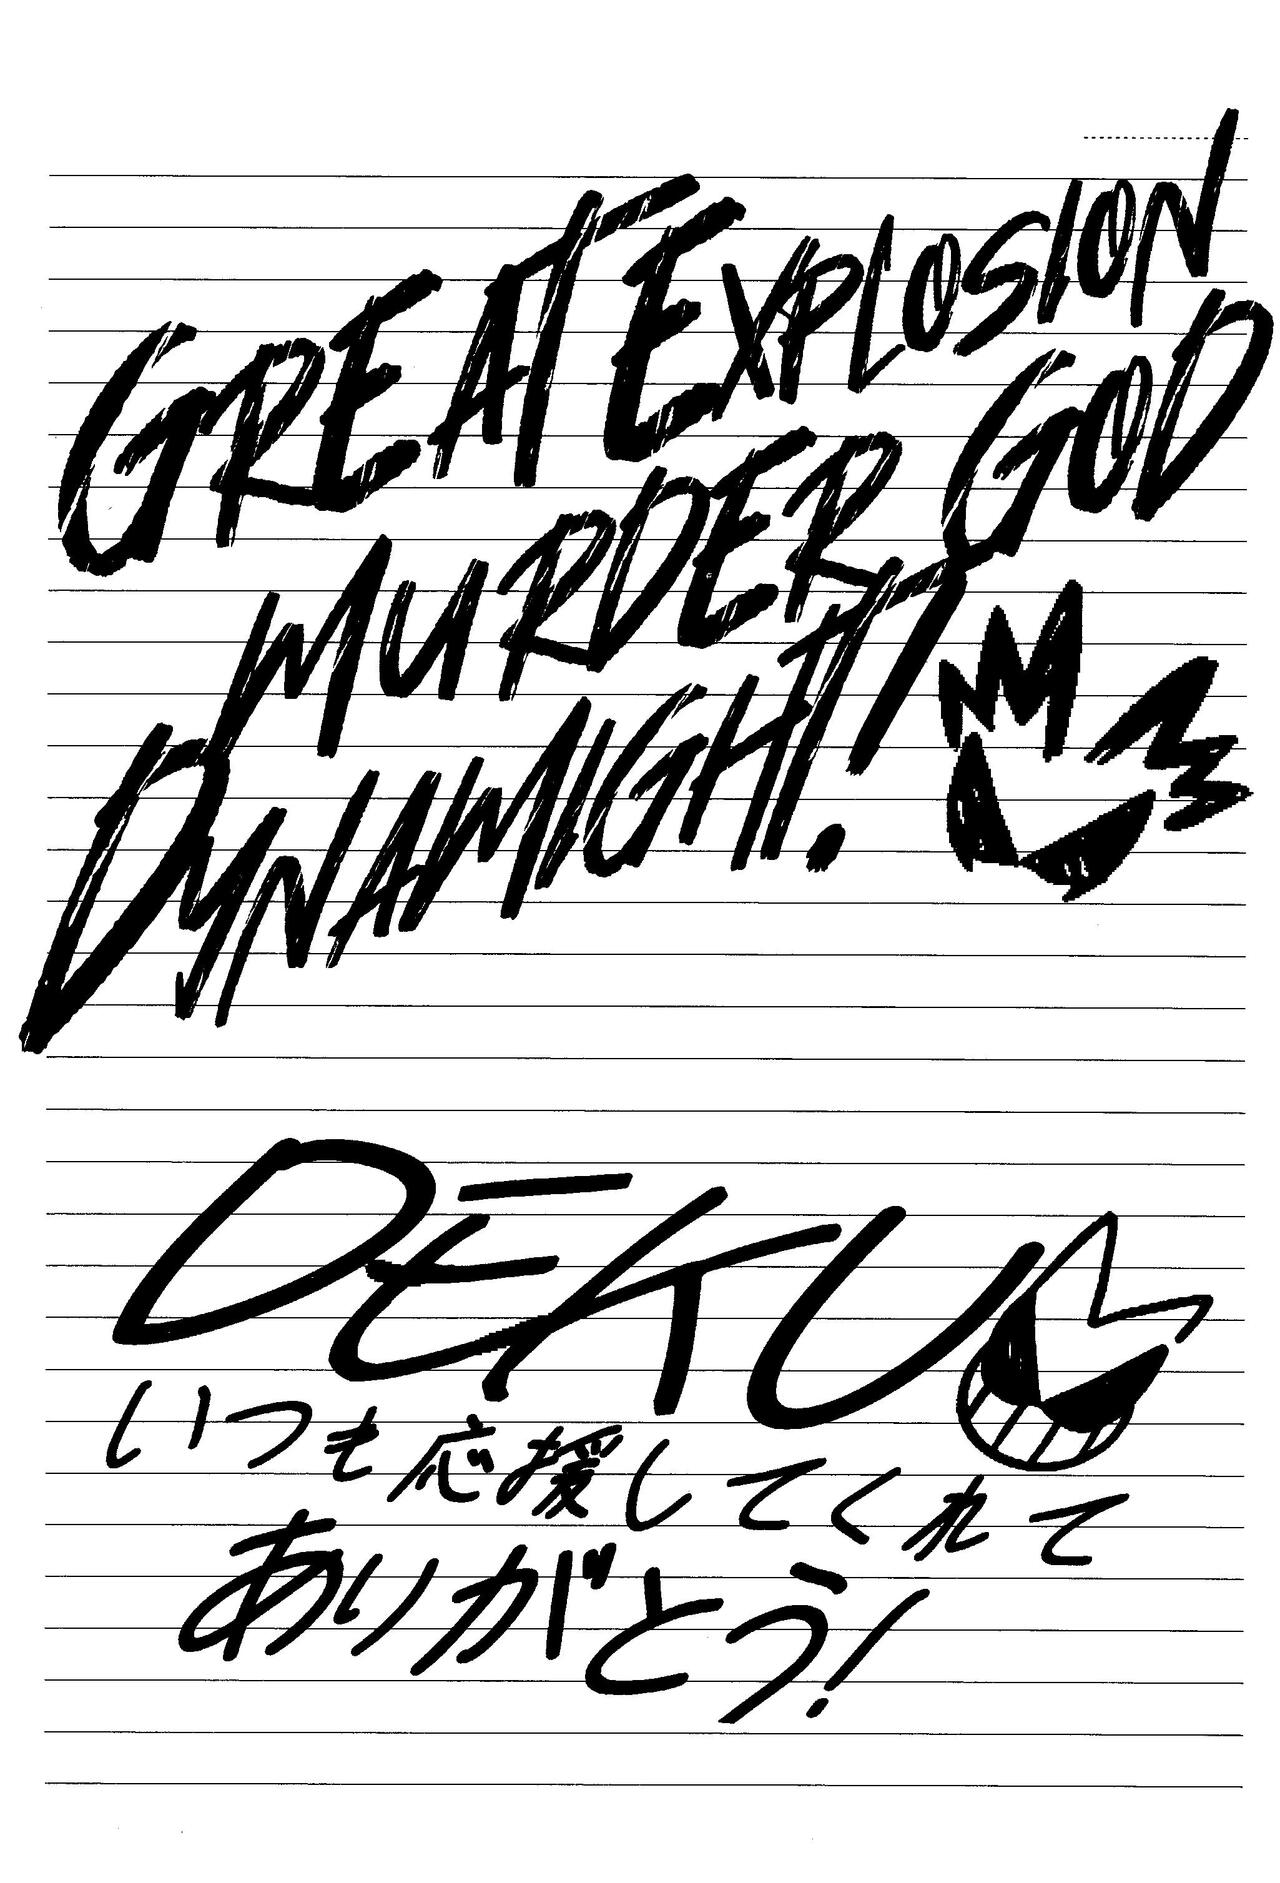 GREAT EXPLOSION
MURDER GOD
DYNAMIGHT!
DEKU
いつも応援してくれて
ありがとう!